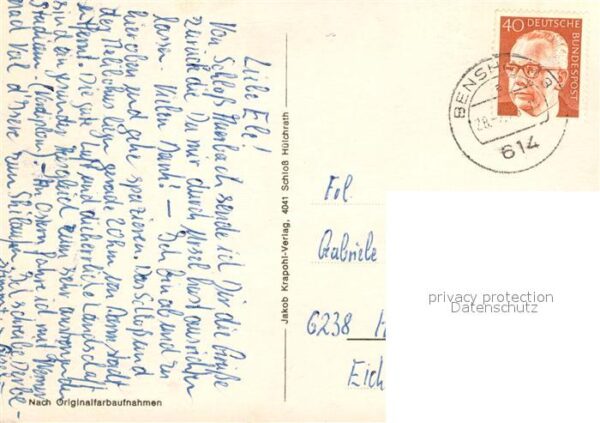 Liebe Eli!
Von Schloß Auerbach sende ich Dir die Grüße
zurück die Du mir durch hast ausrichten
lassen. Vielen Dank! – Ich bin ab und zu
hier oben und gehe spazieren. Das Schloß und
das liegen gerade 20 km von Darmstadt
entfernt. Die gute Luft und die herrliche Landschaft
sind ein gesunder Ausgleich zum sehr anstrengenden
Studium. An Ostern fahre ich mit
nach Val d'Isère zum Skilaufen. Ich schreibe Dir
Jakob Krapohl-Verlag, 4041 Schloß Hülchrath
Nach Originalfarbaufnahmen
40 DEUTSCHE
BUNDESPOST
BENSHEIM
28.
614
Frl.
Gabriele
6238 H
Eich
privacy protection
Datenschutz